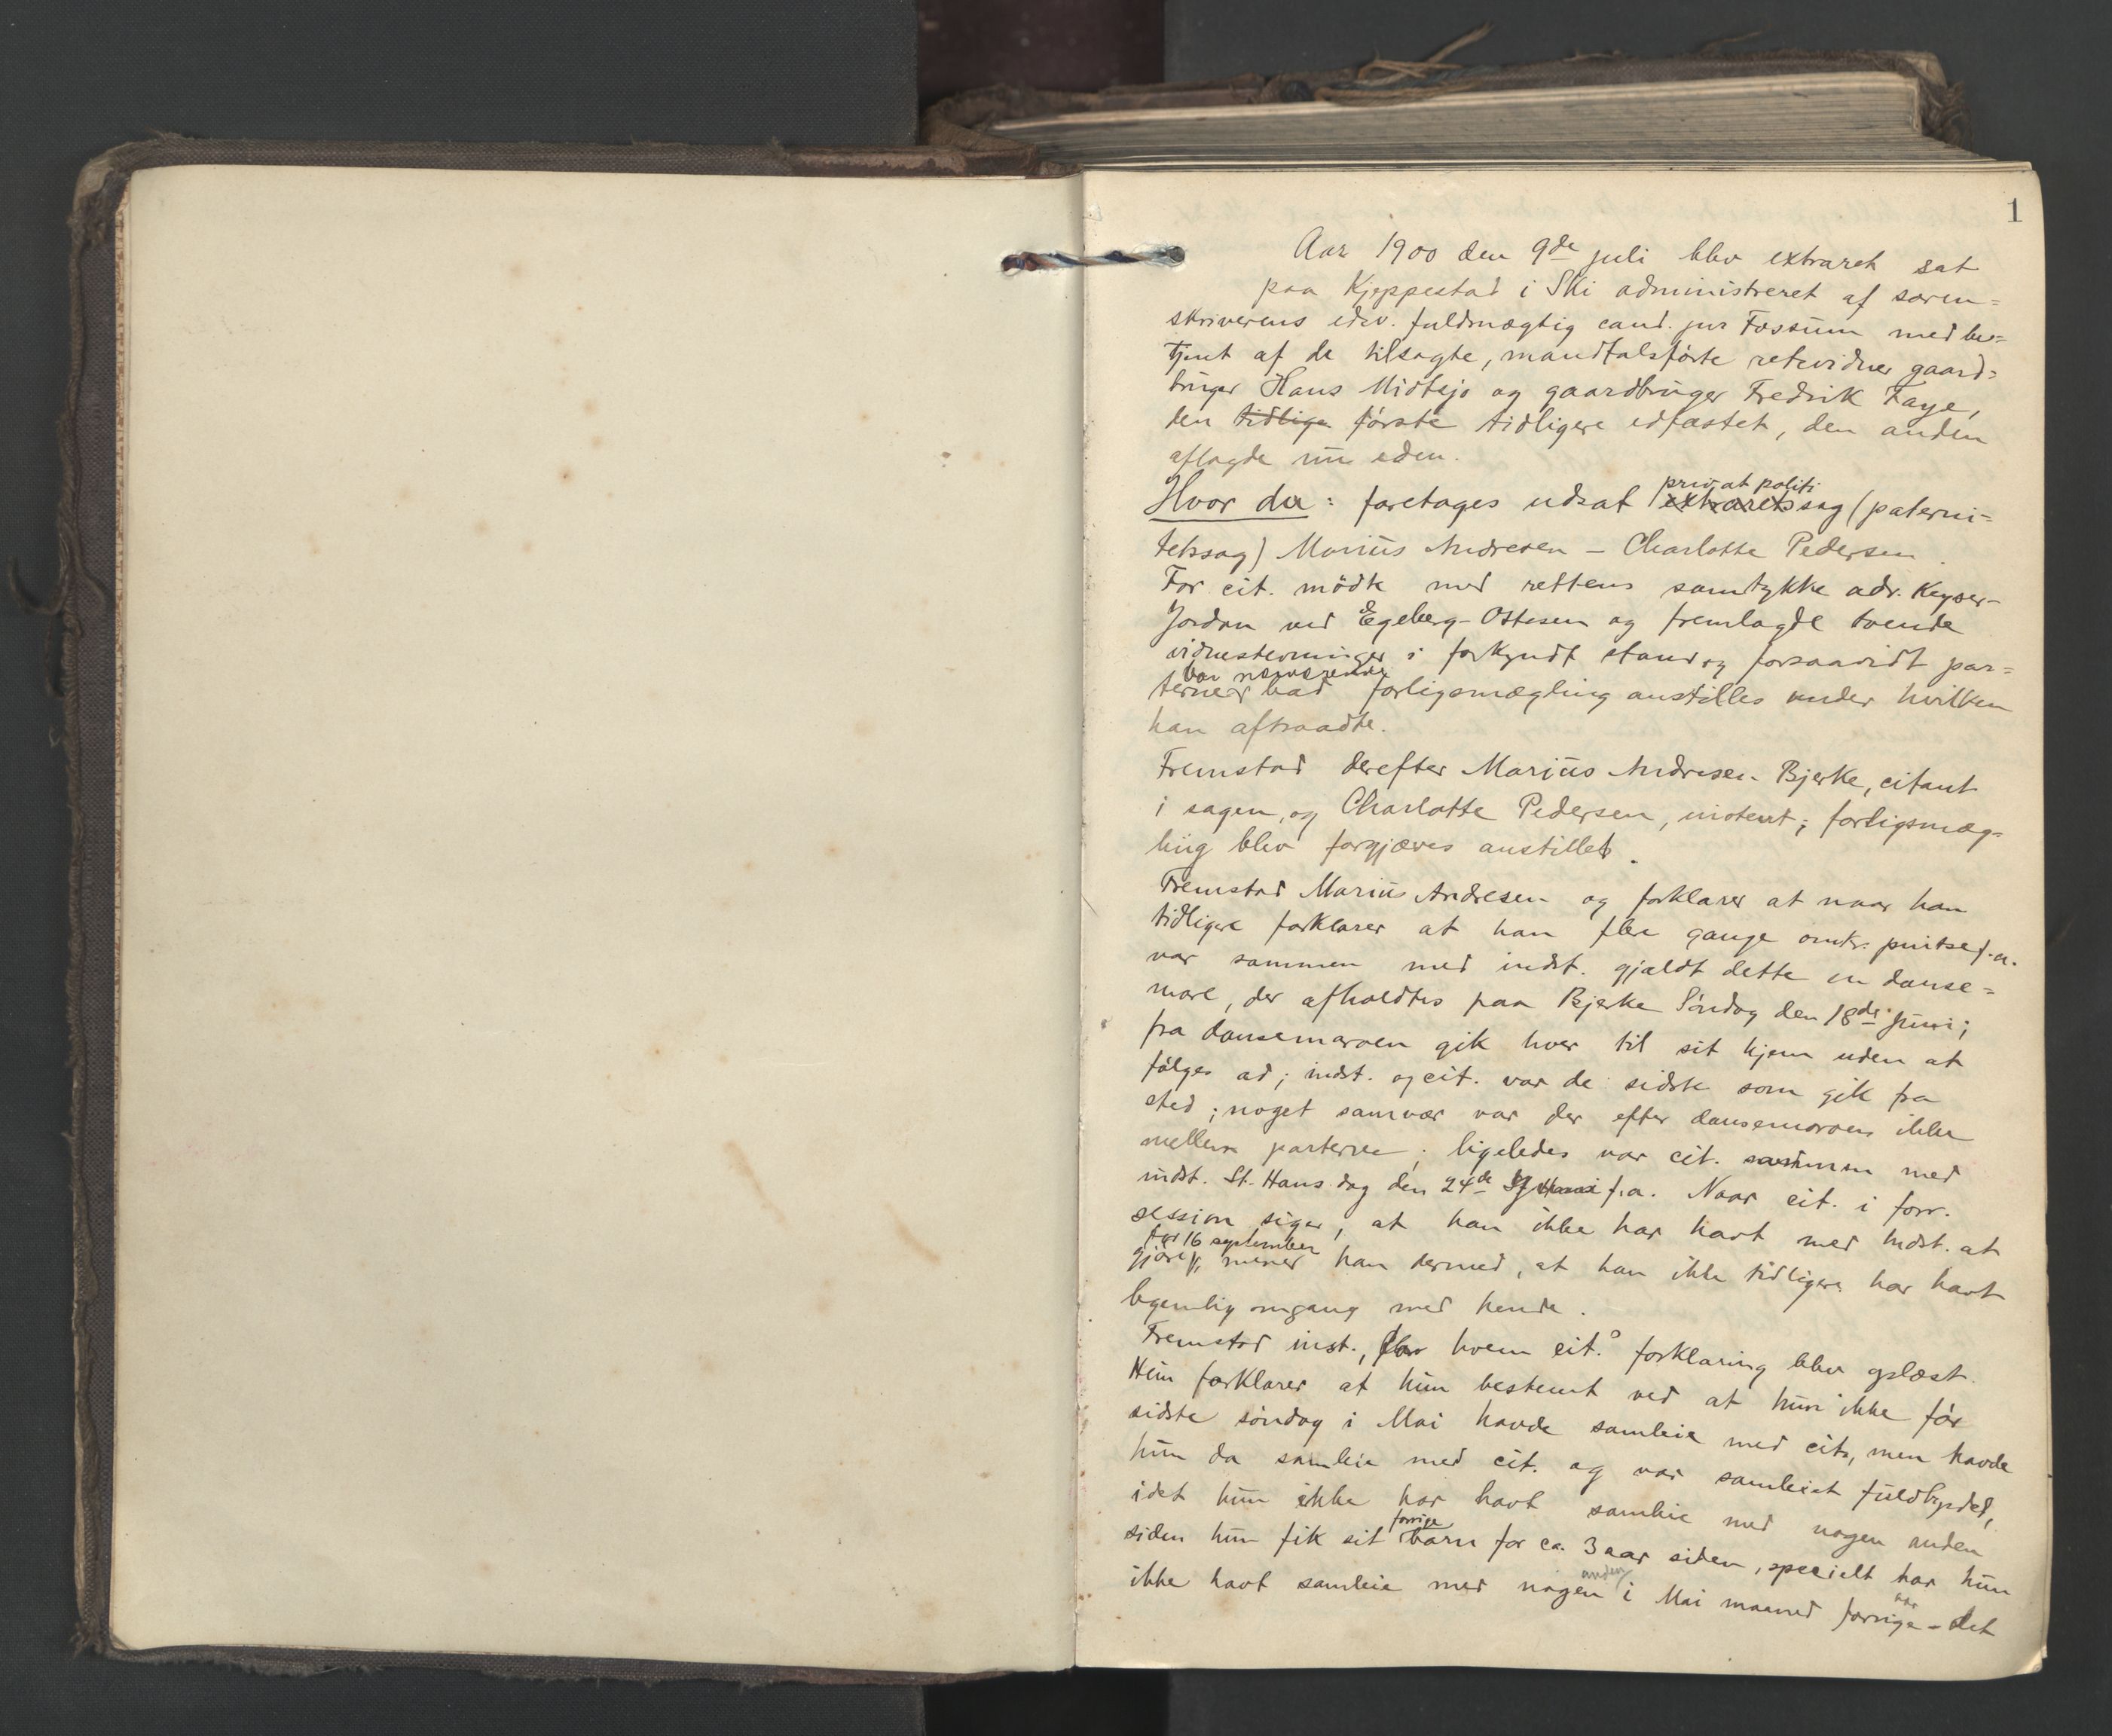 1
Aar 1900 den 9de juli blev extraret sat
paa Kjeppestad i Ski administreret af soren=
skriverens edsv. fuldmægtig cand. jur Fossum med be=
tjent af de tilsagte, mandtalsførte retsvidner gaard=
bruger Hans Midtsjø og gaardbruger Fredrik Faye,
den tidlige første tidligere edfæstet, den anden
aflagde nu eden.
privat politi
Hvor da: foretages udsat extraretssag (paterni=
tetssag) Marius Andresen – Charlotte Pedersen
For cit. mødte med rettens samtykke adv. Keyser-
Jordan ved Egeberg-Ottesen og fremlagde tvende
vidnestevninger i forkyndt stand og forsaavidt par=
var nærværende
terne bad forligsmægling anstilles under hvilken
han aftraadte.
Fremstod derefter Marius Andresen Bjerke, citant
i sagen, og Charlotte Pedersen, instent; forligsmæg=
ling blev forgjæves anstillet.
Fremstod Marius Andresen og forklarer at naar han
tidligere forklarer at han flere gange omtr. pintse f.a.
var sammen med indst. gjældt dette en danse=
moro, der afholdtes paa Bjerke Søndag den 18de juni;
fra dansemoroen gik hver til sit hjem uden at
følges ad; indst. og cit. var de sidste som gik fra
sted; noget samvær var der efter dansemoroen ikke
mellem parterne; ligeledes var cit. sammen med
indst. St. Hans dag den 24de f.a. Naar cit. i forr.
session siger, at han ikke har havt med indst. at
før 16 september
gjøre, mener han dermed, at han ikke tidligere har havt
legemlig omgang med hende.
Fremstod inst., for hvem cit.s forklaring blev oplæst.
Hun forklarer at hun bestemt ved at hun ikke før
sidste søndag i Mai havde samleie med cit., men havde
hun da samleie med cit. og var samleiet fuldbyrdet,
idet hun ikke har havt samleie med nogen anden
forrige
siden hun fik sit barn for ca. 3 aar siden, specielt har hun
anden
aar
ikke havt samleie med nogen i Mai maaned forrige - det